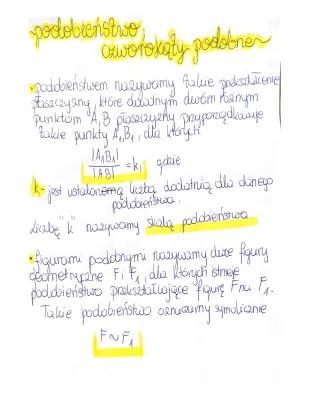 podobieństwo
czworokąty podobne
• podobieństwem nazywamy takie przekształcenie
płaszczyzny, które dowolnym dwóm różnym
punktom A, B płaszczyzny przyporządkowuje
takie punkty A₁, B₁, dla których
|A₁B₁| / |AB| = k, gdzie
k - jest ustaloną liczbą dodatnią dla danego
podobieństwa.
Liczbę "k" nazywamy skalą podobieństwa
• figurami podobnymi nazywamy dwie figury
geometryczne F i F₁, dla których istnieje
podobieństwo przekształcające figurę F na F₁.
Takie podobieństwo oznaczamy symbolicznie
F ~ F₁